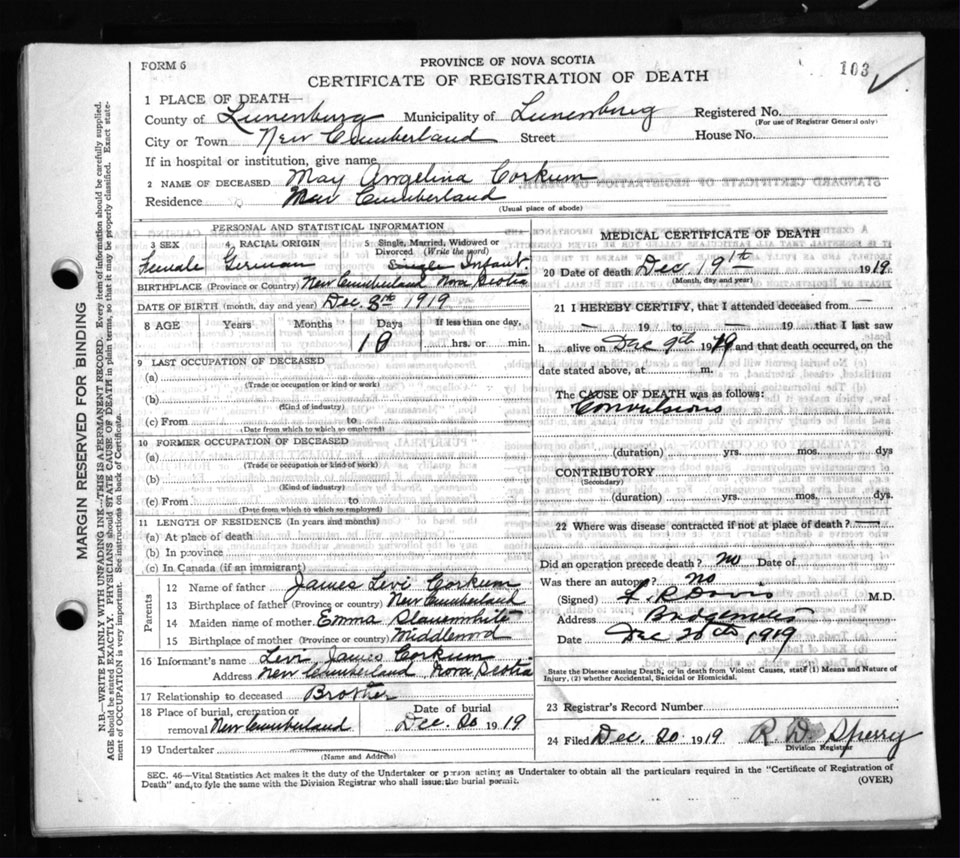 FORM 6
PROVINCE OF NOVA SCOTIA
CERTIFICATE OF REGISTRATION OF DEATH
103
1 PLACE OF DEATH—
County of Lunenburg Municipality of Lunenburg Registered No.
(For use of Registrar General only)
City or Town New Cumberland Street House No.
If in hospital or institution, give name
2 NAME OF DECEASED May Angelina Corkum
Residence New Cumberland
(Usual place of abode)
PERSONAL AND STATISTICAL INFORMATION
3 SEX 4 RACIAL ORIGIN 5 Single, Married, Widowed or
Divorced (Write the word)
Female German Single Infant
BIRTHPLACE (Province or Country) New Cumberland Nova Scotia
DATE OF BIRTH (month, day and year) Dec. 3th 1919
8 AGE Years Months Days If less than one day,
18 hrs. or min.
9 LAST OCCUPATION OF DECEASED
(a)
(Trade or occupation or kind or work)
(b)
(Kind of industry)
(c) From to
(Date from which to which so employed)
10 FORMER OCCUPATION OF DECEASED
(a)
(Trade or occupation or kind of work)
(b)
(Kind of industry)
(c) From to
(Date from which to which so employed)
11 LENGTH OF RESIDENCE (In years and months)
(a) At place of death
(b) In province
(c) In Canada (if an immigrant)
Parents
12 Name of father James Levi Corkum
13 Birthplace of father (Province or country) New Cumberland
14 Maiden name of mother Emma Slauenwhite
15 Birthplace of mother (Province or country) Middlewood
16 Informant's name Levi James Corkum
Address New Cumberland Nova Scotia
17 Relationship to deceased Brother
18 Place of burial, cremation or Date of burial
removal New Cumberland Dec. 20 1919
19 Undertaker
(Name and Address)
MEDICAL CERTIFICATE OF DEATH
20 Date of death Dec. 19th 1919
(Month, day and year)
21 I HEREBY CERTIFY, that I attended deceased from —
— 19 to — 19 that I last saw
h alive on Dec 9th 1919 and that death occurred, on the
date stated above, at m.
The CAUSE OF DEATH was as follows:
Convulsions
(duration) yrs. mos. dys
CONTRIBUTORY
(Secondary)
(duration) yrs. mos. dys.
22 Where was disease contracted if not at place of death? —
Did an operation precede death? no Date of
Was there an autopsy? no
(Signed) R Davis M.D.
Address
Date Dec 20th 1919
State the Disease causing Death, or in death from Violent Causes, state (1) Means and Nature of
Injury, (2) whether Accidental, Suicidal or Homicidal.
23 Registrar's Record Number
24 Filed Dec. 20 1919 R. D. Sperry
Division Registrar
SEC. 46—Vital Statistics Act makes it the duty of the Undertaker or person acting as Undertaker to obtain all the particulars required in the "Certificate of Registration of
Death" and to fyle the same with the Division Registrar who shall issue the burial permit. (OVER)
MARGIN RESERVED FOR BINDING
N.B.—WRITE PLAINLY WITH UNFADING INK—THIS IS A PERMANENT RECORD. Every item of information should be carefully supplied.
AGE should be stated EXACTLY. PHYSICIANS should STATE CAUSE OF DEATH in plain terms, so that it may be properly classified. Exact state-
ment of OCCUPATION is very important. See instructions on back of Certificate.